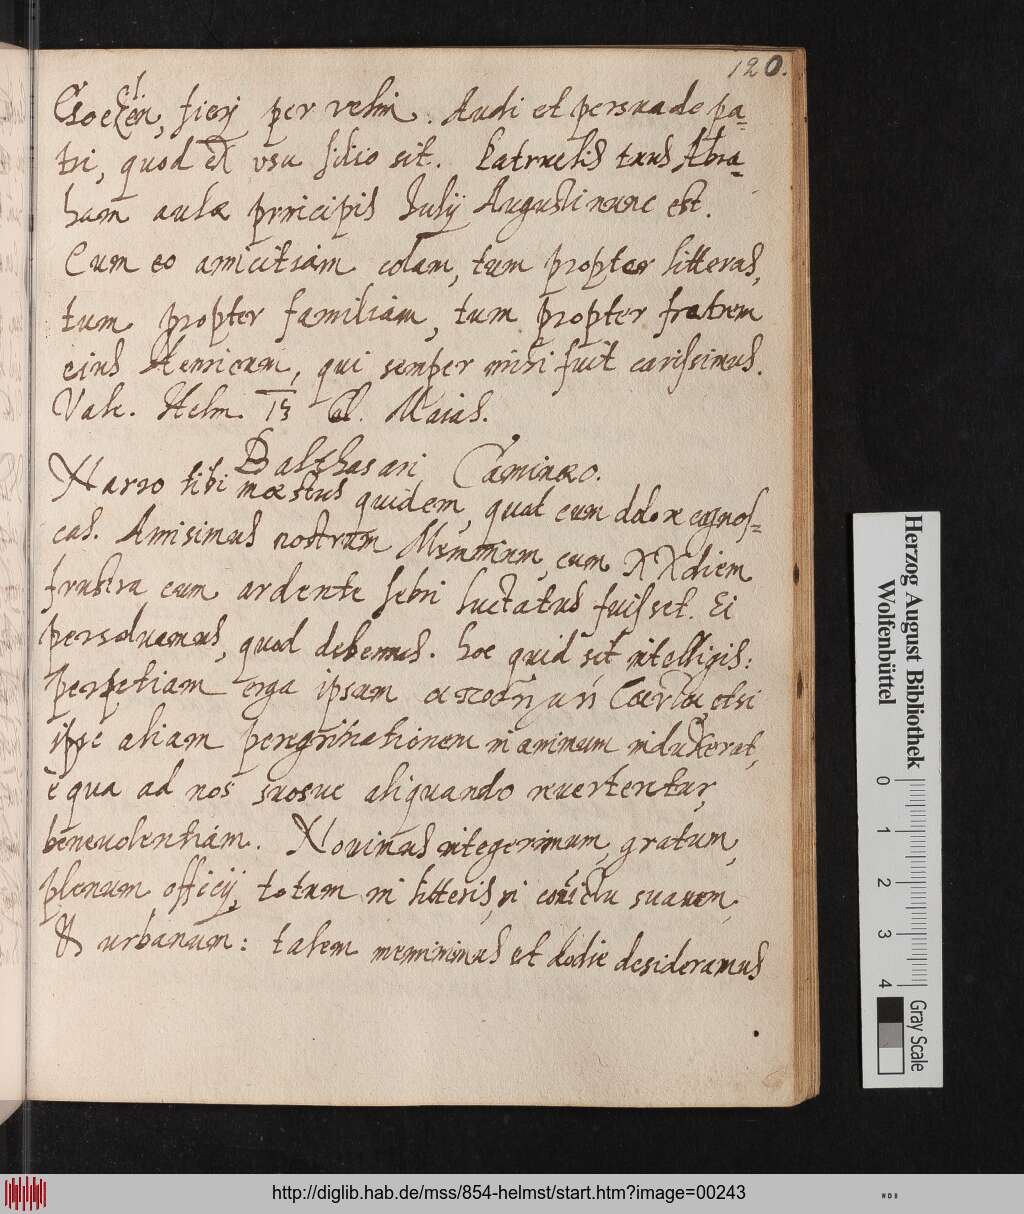 120.
Goezen, fierj per velim. Audi et persuade pa-
tri, quod ex usu filio sit. Patruelis tuus Abra-
ham aulae principis Julij Augusti nunc est.
Cum eo amicitiam colam, tum propter litteras,
tum propter familiam, tum propter fratrem
eius Henricum, qui semper mihi fuit carissimus.
Vale. Helm. Maias.
Balthasari Caminaeo.
Narro tibi moestus quidem, quod cum dolore cognos-
cas. Amisimus nostrum Memmium, cum XX diem
frustra cum ardente febri luctatus fuisset. Ei
persoluamus, quod debemus. hoc quid sit intelligis:
perpetiam erga ipsum etsi
ipse aliam peregrinationem in animum induxerat,
è qua ad nos suosue aliquando reuerteretur,
beneuolentiam. Nouimus integerimum, gratum,
plenum officij, totum in litteris, in conuictu suauem,
& urbanum: talem meminimus et hodie desideramus
Herzog August Bibliothek
Wolfenbüttel
0 1 2 3 4
Gray Scale
http://diglib.hab.de/mss/854-helmst/start.htm?image=00243